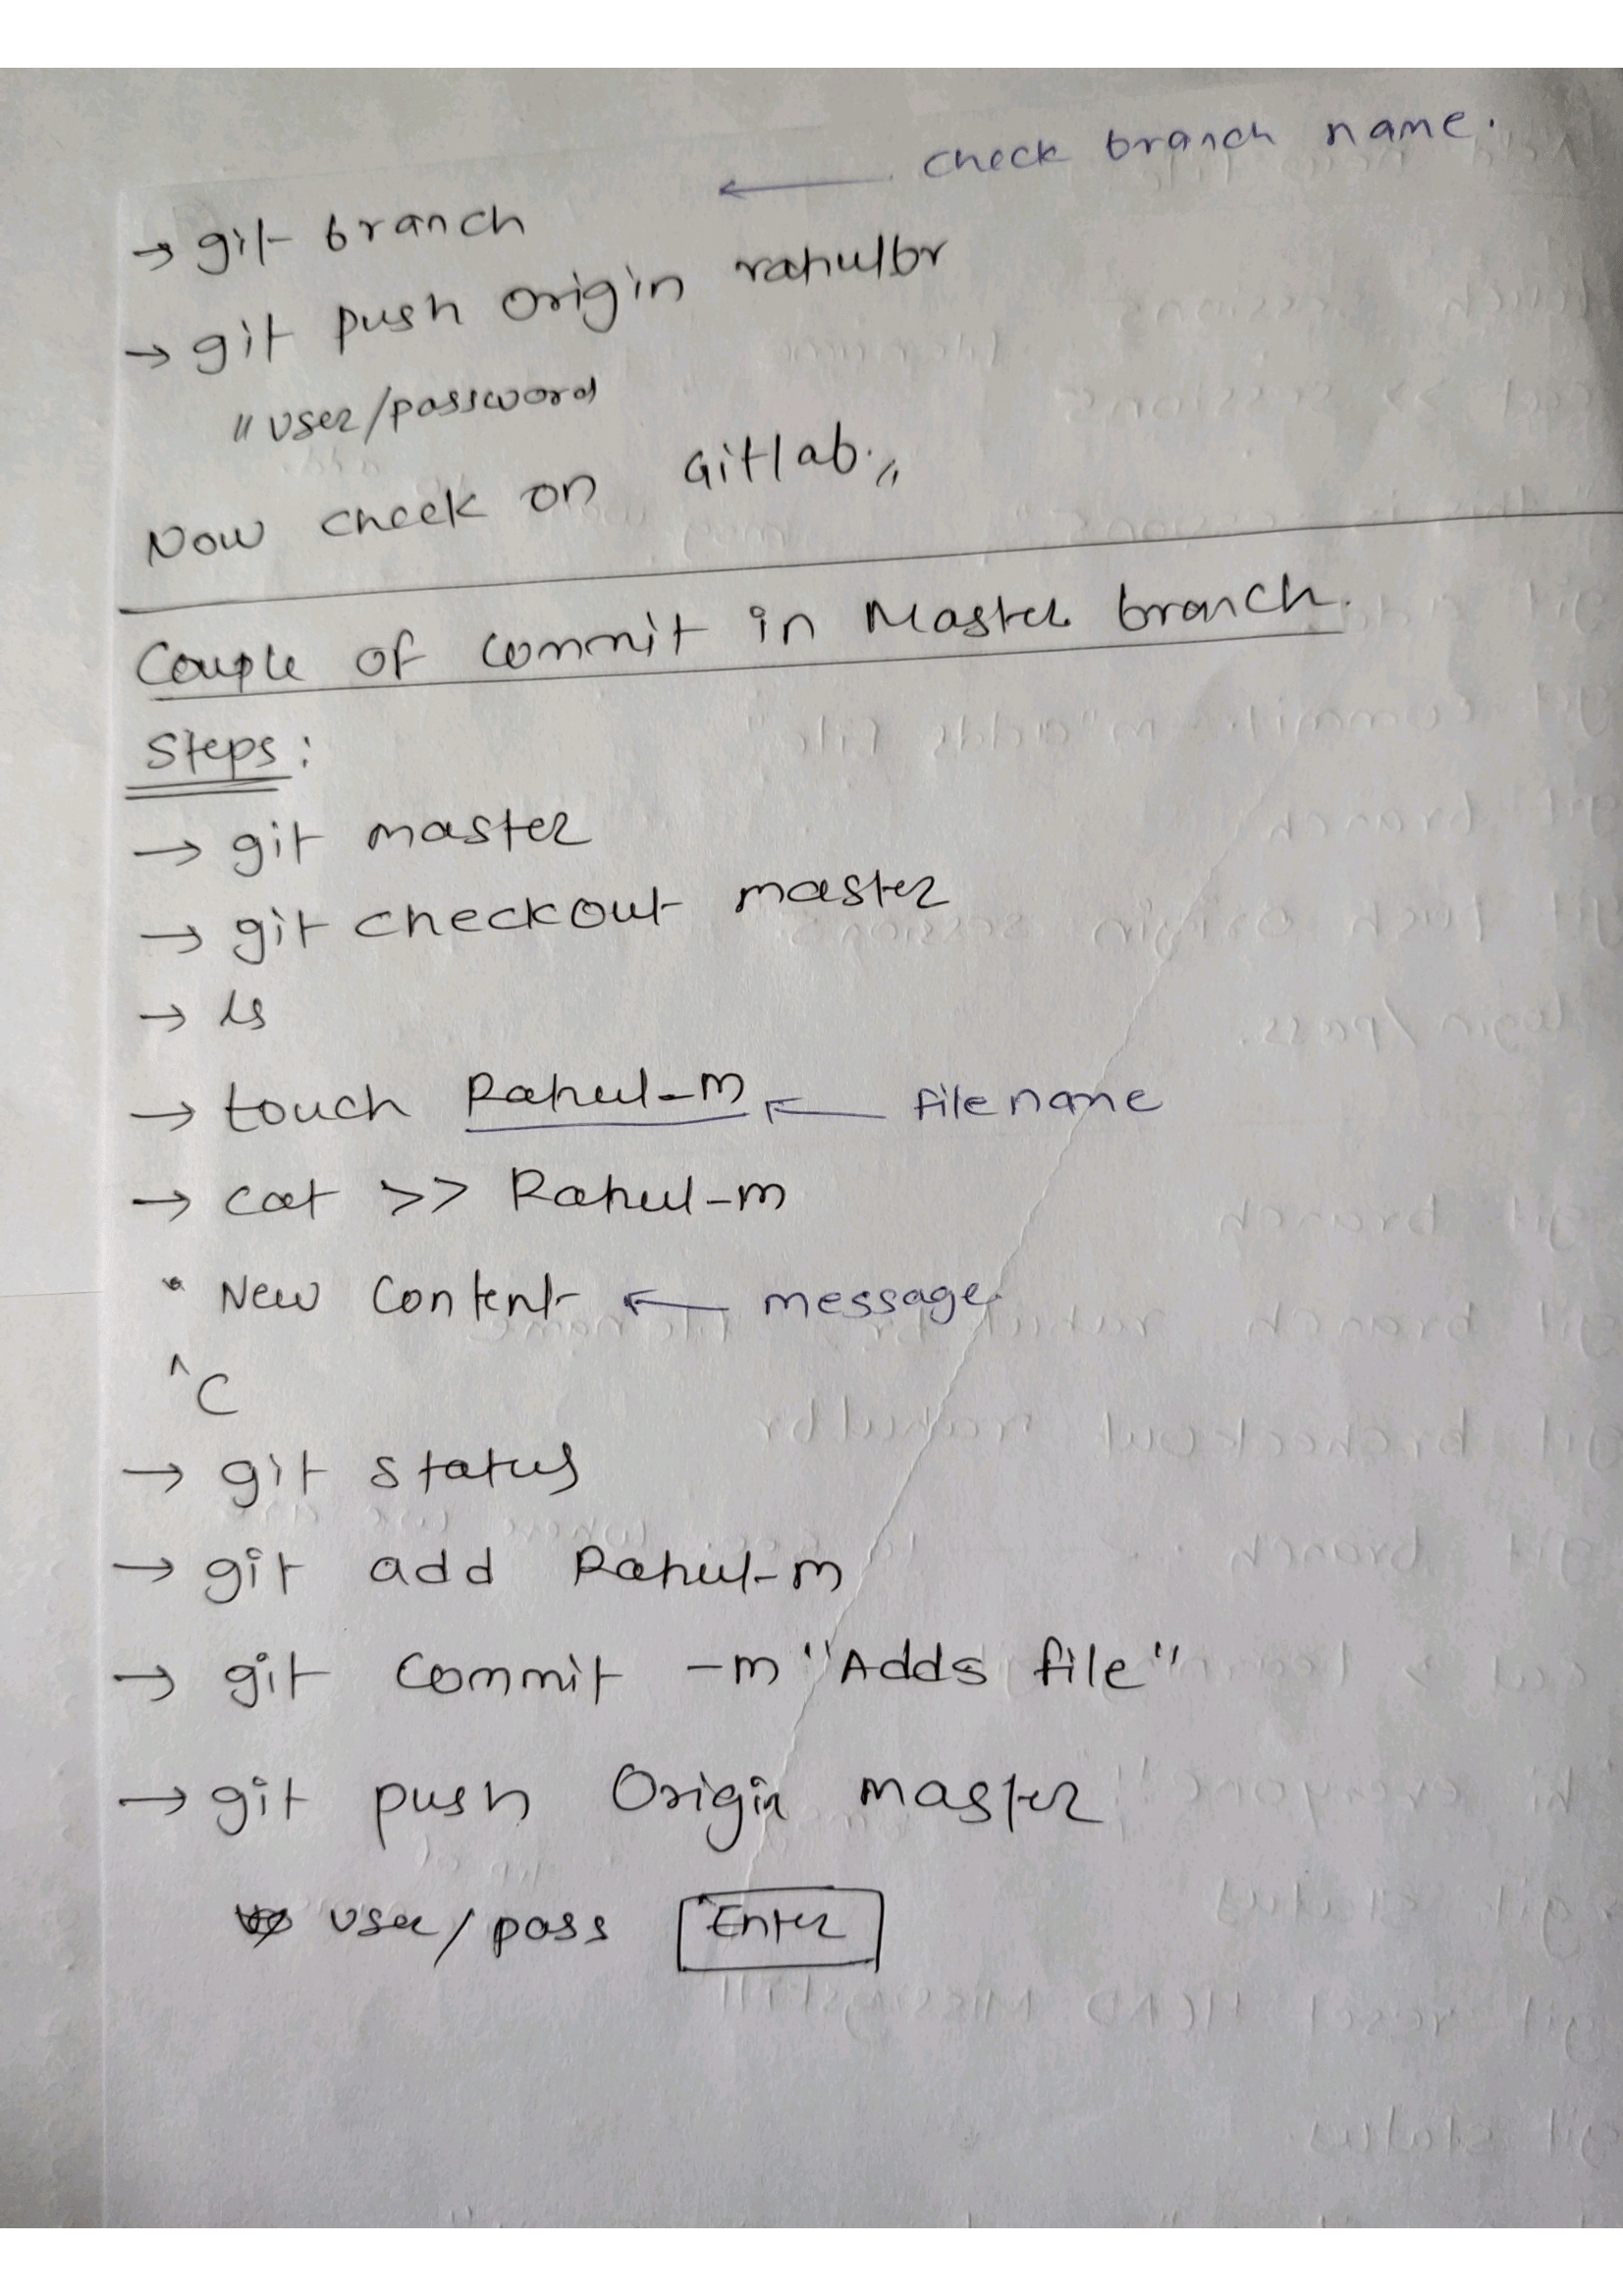 ← check branch name.
→ git branch
→ git push origin rahulbr
" user/password
Now check on Gitlab. "
Couple of commit in Master branch.
Steps:
→ git master
→ git checkout master
→ ls
→ touch Rahul-m ← filename
→ cat >> Rahul-m
• New Content ← message.
^C
→ git status
→ git add Rahul-m
→ git commit -m "Adds file"
→ git push Origin master
user/pass Enter